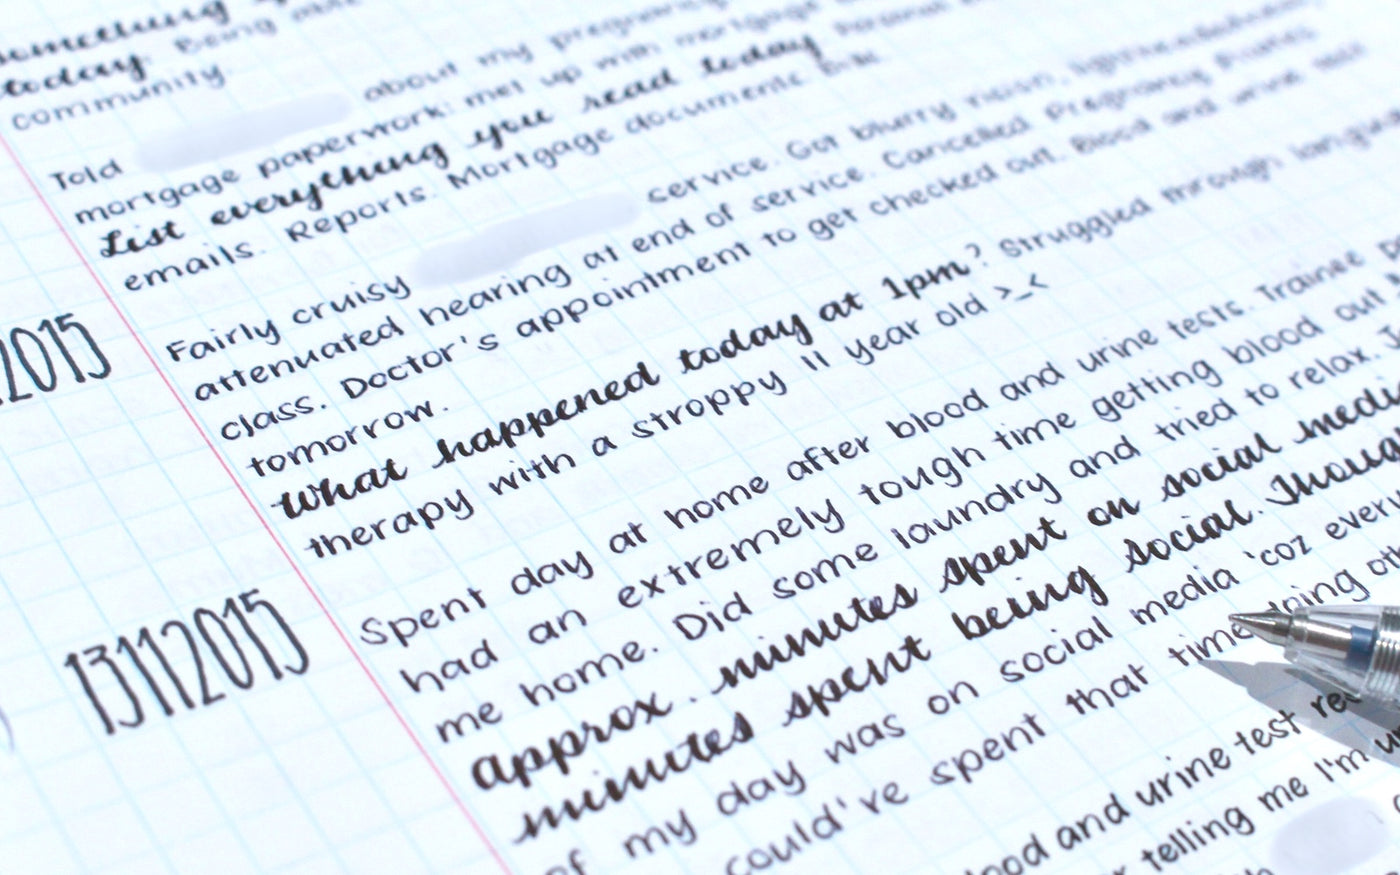 something
today. Being
community.
Told about my pregnancy
mortgage paperwork; met up with mortgage
List everything you read today
emails. Reports. Mortgage documents
Fairly cruisy service. Got blurry vision, lightheadedness,
attenuated hearing at end of service. Cancelled Pregnancy Pilates
class. Doctor's appointment to get checked out. Blood and urine test
tomorrow.
What happened today at 1pm? Struggled through
therapy with a stroppy 11 year old >_<
2015
13112015
Spent day at home after blood and urine tests. Trainee
had an extremely tough time getting blood out
me home. Did some laundry and tried to relax.
approx. minutes spent on social
minutes spent being social.
of my day was on social media 'coz
could've spent that time doing
blood and urine test
telling me I'm